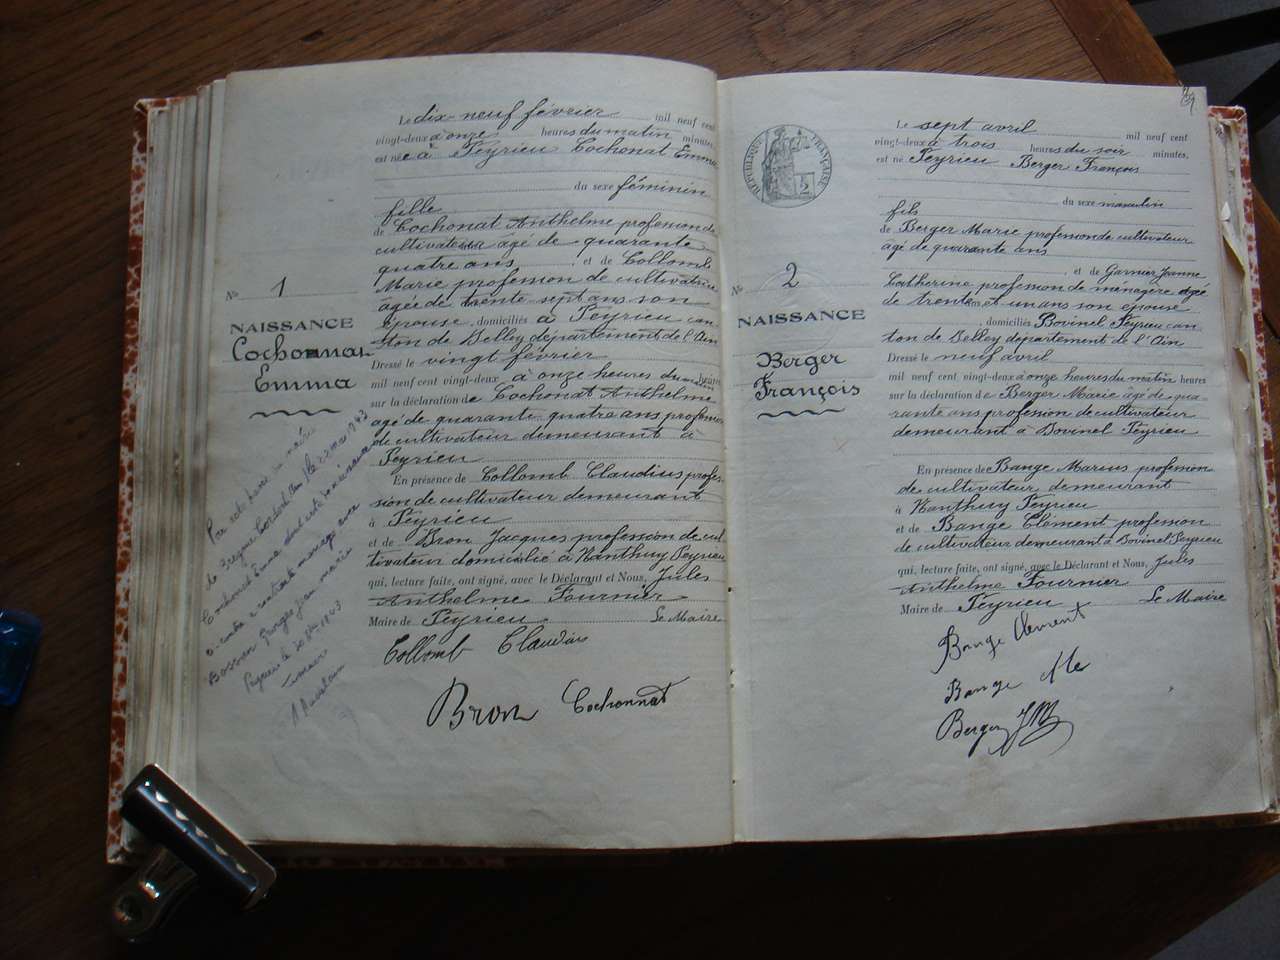 Le dix-neuf février mil neuf cent
vingt-deux à onze heures du matin minutes,
est née à Peyrieu Cochonat Emma
du sexe féminin
fille
de Cochonat Anthelme profession de
cultivateur âgé de quarante
quatre ans, et de Collomb
Marie profession de cultivatrice
agée de trente-sept ans son
épouse, domiciliés à Peyrieu can
ton de Belley département de l'Ain
Dressé le vingt février
mil neuf cent vingt-deux à onze heures du matin heures
sur la déclaration de Cochonat Anthelme
agé de quarante-quatre ans profession
de cultivateur demeurant à
Peyrieu
En présence de Collomb Claudius profes-
sion de cultivateur demeurant
à Peyrieu
et de Bron Jacques profession de cul
tivateur domicilié à Nanthuy Peyrieu
qui, lecture faite, ont signé, avec le Déclarant et Nous, Jules
Anthelme Fournier
Maire de Peyrieu. Le Maire
Collomb Claudius
Bron Cochonnat
No 1
NAISSANCE
Cochonnat
Emma
Par acte
de
Cochonat Emma
mariage avec
Georges Jean Marie
Peyrieu le 1943
29
RÉPUBLIQUE FRANÇAISE
2
Le sept avril mil neuf cent
vingt-deux à trois heures du soir minutes,
est né Peyrieu Berger François
du sexe masculin
fils
de Berger Marie profession de cultivateur
agé de quarante ans
, et de Garnier Jeanne
Catherine profession de ménagère agée
de trente et un ans son épouse
, domiciliés Bovinel Peyrieu can
ton de Belley département de l'Ain
Dressé le neuf avril
mil neuf cent vingt-deux à onze heures du matin heures
sur la déclaration de Berger Marie agé de qua-
rante ans profession de cultivateur
demeurant à Bovinel Peyrieu
En présence de Bange Marius profession
de cultivateur demeurant
à Nanthuy Peyrieu
et de Bange Clément profession
de cultivateur demeurant à Bovinel Peyrieu
qui, lecture faite, ont signé, avec le Déclarant et Nous, Jules
Anthelme Fournier
Maire de Peyrieu. Le Maire
Bange Clément
Bange
Berger JM
No 2
NAISSANCE
Berger
François